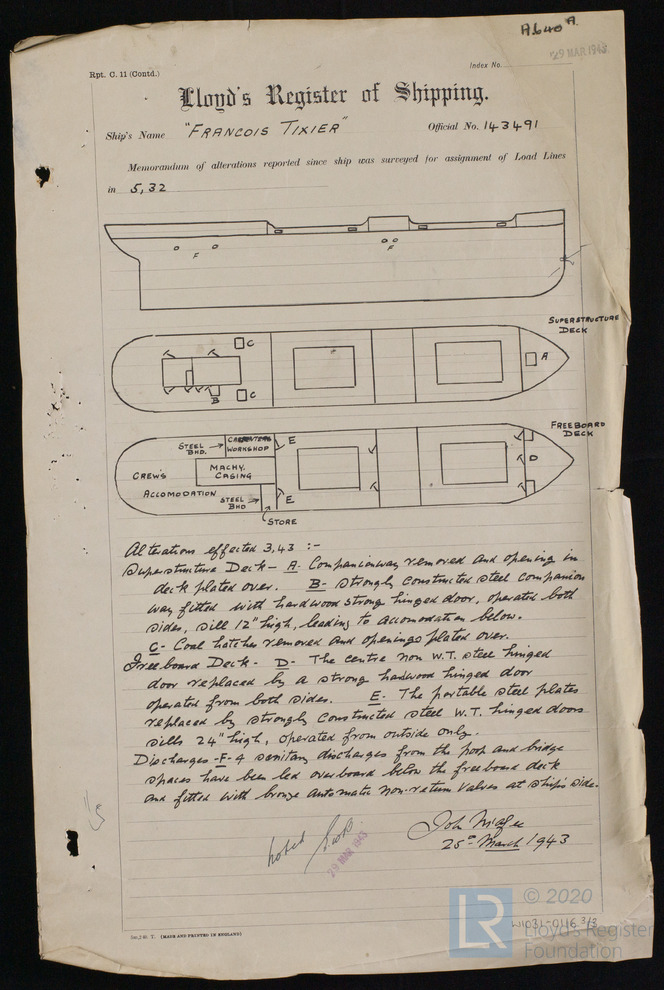 A640A.
29 MAR 1943
Rpt. C. 11 (Contd.)
Index No.
Lloyd's Register of Shipping.
Ship's Name "FRANCOIS TIXIER" Official No. 143491
Memorandum of alterations reported since ship was surveyed for assignment of Load Lines
in 5,32
F
F
SUPERSTRUCTURE
DECK
C
A
B
C
FREEBOARD
DECK
STEEL
BHD.
CARPENTERS
WORKSHOP
E
CREW'S
ACCOMODATION
MACHY.
CASING
D
STEEL
BHD
E
STORE
Alterations effected 3,43 :-
Superstructure Deck - A- Companionway removed and opening in
deck plated over. B- Strongly constructed steel companion
way fitted with hardwood strong hinged door, operated both
sides, sill 12" high, leading to accomodation below.
C- Coal hatches removed and openings plated over.
Freeboard Deck - D- The centre non W.T. steel hinged
door replaced by a strong hardwood hinged door
operated from both sides. E- The portable steel plates
replaced by strongly constructed steel W.T. hinged doors
sills 24" high, operated from outside only.
Discharges -F- 4 sanitary discharges from the poop and bridge
spaces have been led overboard below the freeboard deck
and fitted with bronze automatic non-return valves at ship's side.
noted
29 MAR 1943
John
25th March 1943
(MADE AND PRINTED IN ENGLAND)
W1031-0116 3/3
LR
© 2020
Lloyd's Register
Foundation